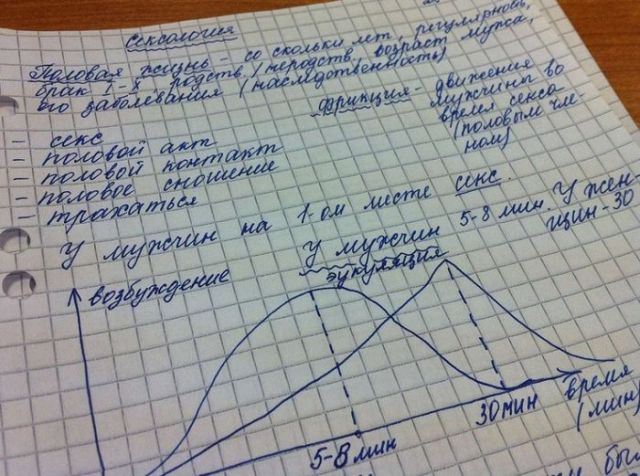 Сексология
Половая жизнь - со скольки лет, регулярность,
брак 1-х родств./неродств., возраст мужа,
его заболевания (наследственность)
фрикция - движение
мужчины во
время секса
(половым чле-
ном)
- секс
- половой акт
- половой контакт
- половое сношение
- трахаться
У мужчин на 1-ом месте секс.
У мужчин 5-8 мин. У жен-
щин - 30
эукуляция
возбуждение
30 мин
время
(мин)
5-8 мин